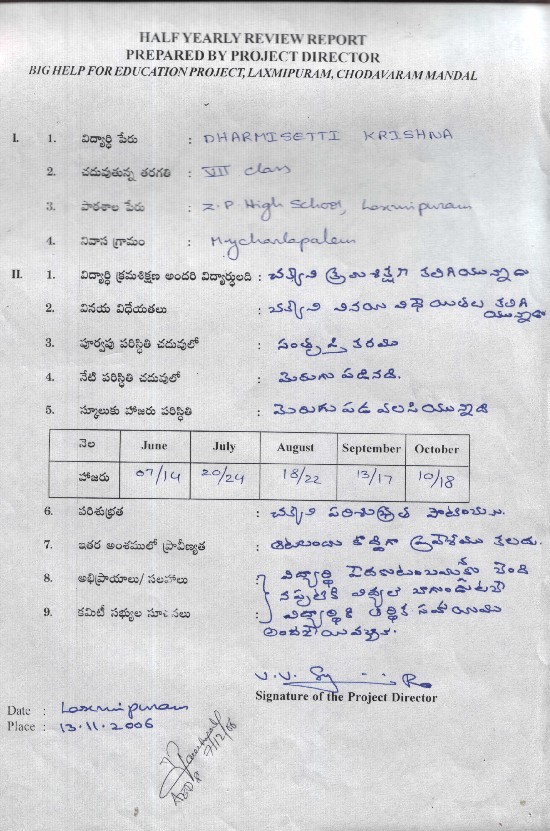 HALF YEARLY REVIEW REPORT
PREPARED BY PROJECT DIRECTOR
BIG HELP FOR EDUCATION PROJECT, LAXMIPURAM, CHODAVARAM MANDAL
I. 1. విద్యార్థి పేరు : DHARMISETTI KRISHNA
2. చదువుతున్న తరగతి : VII class
3. పాఠశాల పేరు : Z.P High School, Laxmipuram
4. నివాస గ్రామం : Mycharlapalem
II. 1. విద్యార్థి క్రమశిక్షణ అందరి విద్యార్థులది : చక్కని క్రమశిక్షణ కలిగియున్నాడు
2. వినయ విధేయతలు : చక్కని వినయ విధేయతలు కలిగి
యున్నాడు
3. పూర్వపు పరిస్థితి చదువులో : సంతృప్తికరము
4. నేటి పరిస్థితి చదువులో : మెరుగు పడినది.
5. స్కూలుకు హాజరు పరిస్థితి : మెరుగు పడవలసియున్నది
నెల June July August September October
హాజరు 07/14 20/24 18/22 13/17 10/18
6. పరిశుభ్రత : చక్కని పరిశుభ్రత
7. ఇతర అంశములో ప్రావీణ్యత : ఆటలందు కొద్దిగా ప్రవేశము కలదు.
8. అభిప్రాయాలు/ సలహాలు : విద్యార్థి పేదకుటుంబమునకు చెంది
నప్పటికి విద్యలో
9. కమిటీ సభ్యుల సూచనలు : విద్యార్థికి ఆర్థిక సహాయము
Signature of the Project Director
Date : Laxmipuram
Place : 13.11.2006
7/12/06